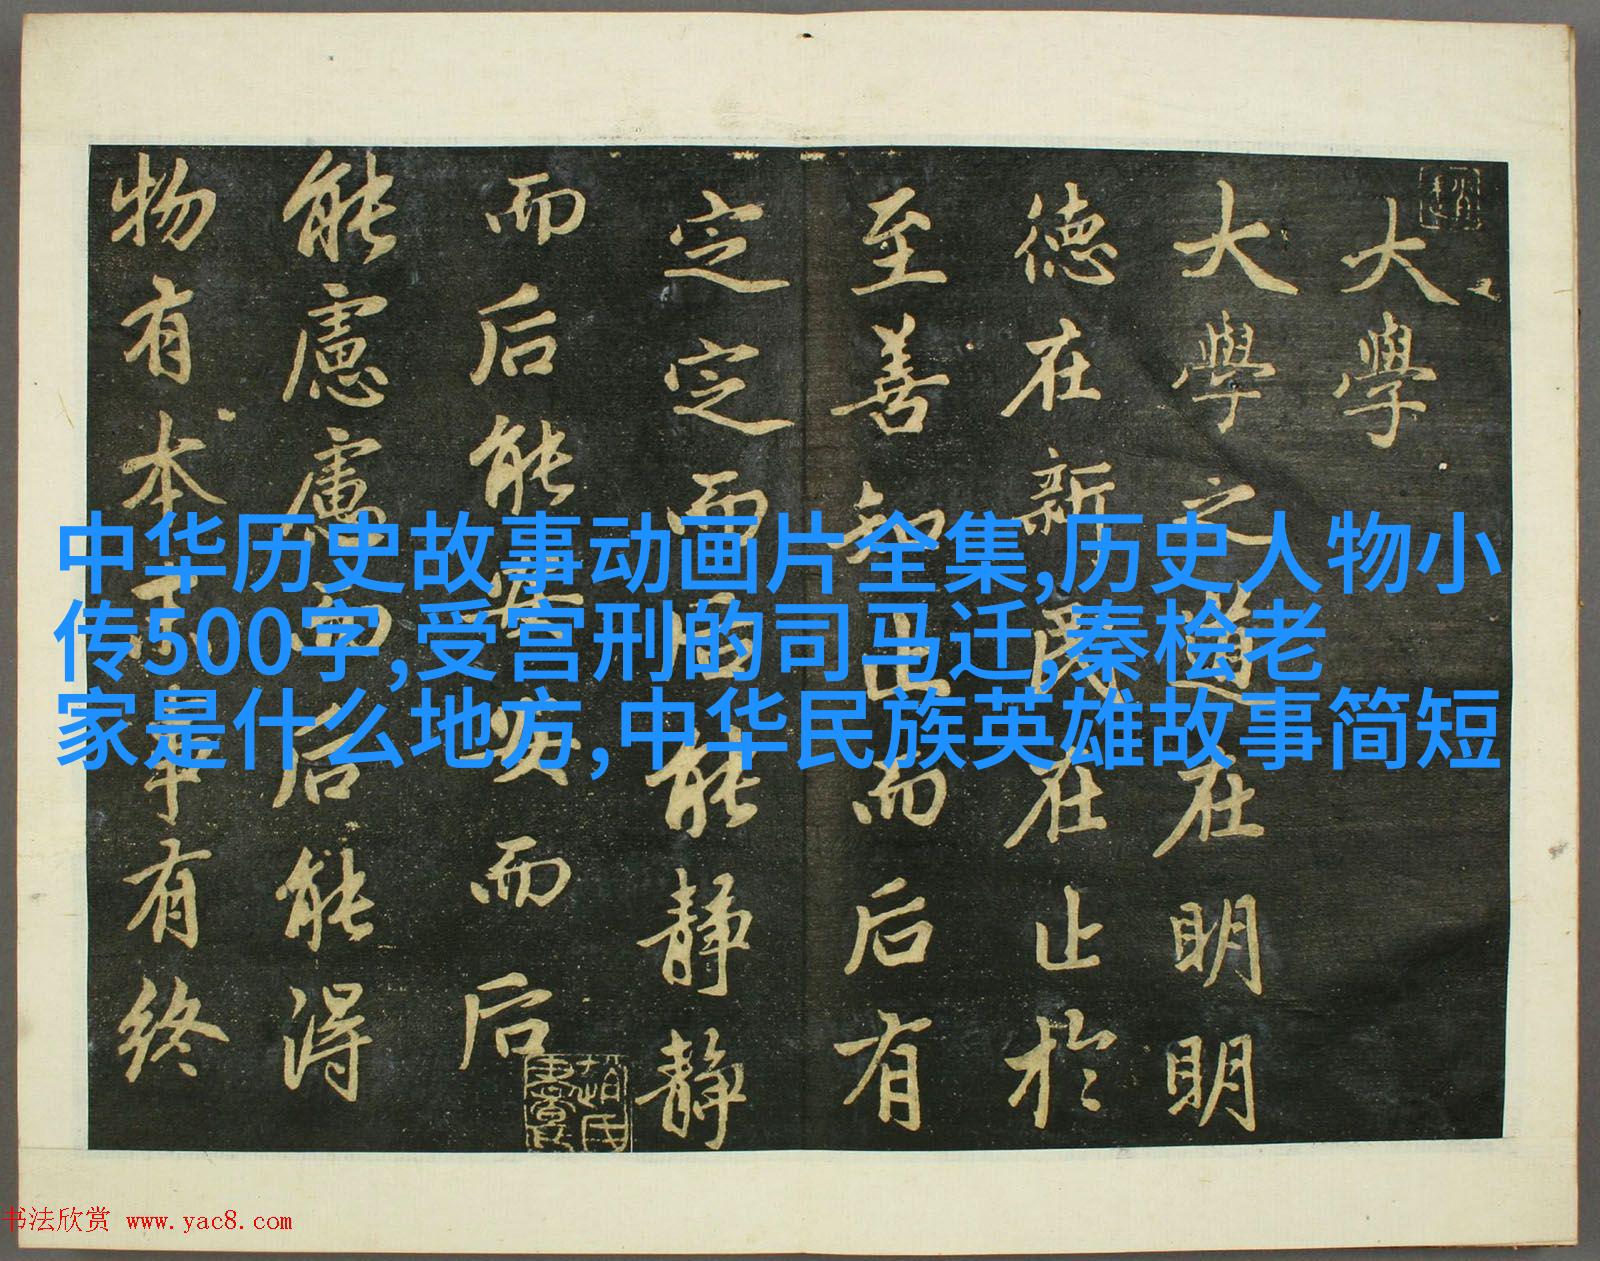 大學
大學之道在明明
德在新民在止於
至善知止而后有
定定而后能静静
而后能安安而后
能慮慮而后能得
物有本末事有終
中华历史故事动画片全集,历史人物小
传500字,受宫刑的司马迁,秦桧老
家是什么地方,中华民族英雄故事简短
书法欣赏 www.yac8.com